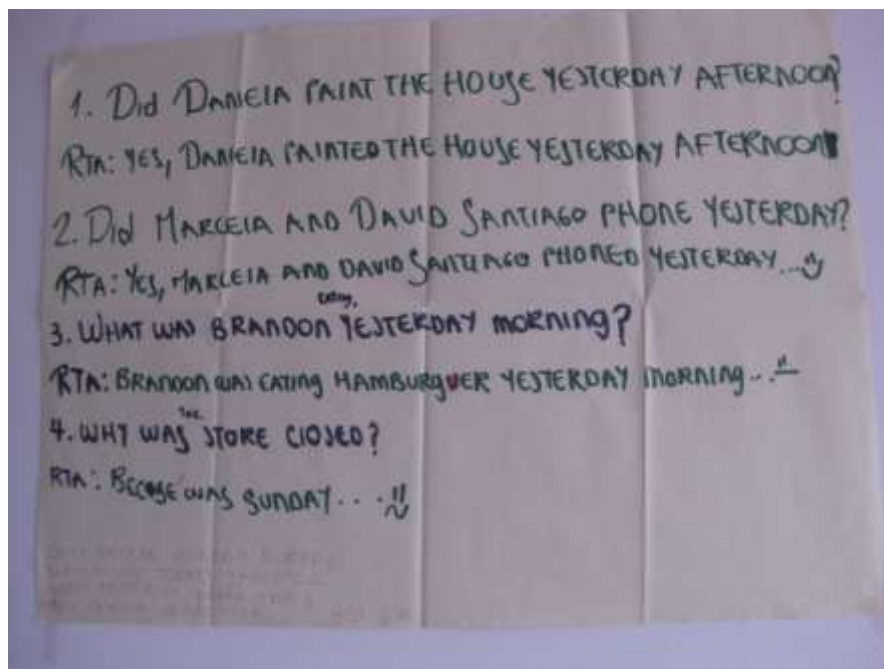 1. Did DANIELA PAINT THE HOUSE YESTERDAY AFTERNOON?
RTA: YES, DANIELA PAINTED THE HOUSE YESTERDAY AFTERNOON
2. Did MARCELA AND DAVID SANTIAGO PHONE YESTERDAY?
RTA: YES, MARCELA AND DAVID SANTIAGO PHONED YESTERDAY...
eating,
3. WHAT WAS BRANDON YESTERDAY MORNING?
RTA: BRANDON WAS EATING HAMBURGUER YESTERDAY MORNING...
THE
4. WHY WAS STORE CLOSED?
RTA: BECOSE WAS SUNDAY....